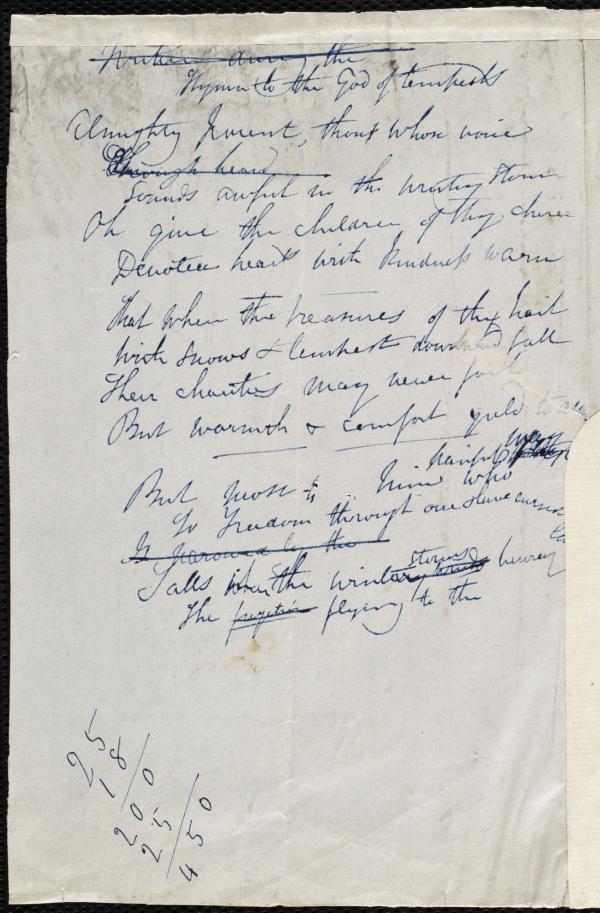 Written during the
Hymn to the God of tempests
Almighty Parent, thou whose voice
Through heard
Sounds awful in the wintry storm
Oh give the children of thy choice
Devoted hearts with kindness warm
That when the treasures of thy hail
With snows & tempest downward fall
Their charities may never fail
But warmth & comfort yield to
painful way
But most to him who
To Freedom through our slave cursed
Is pursued by the
Falls when the wintry storms
The fugitive flying to the
25
18/
200
25/
450